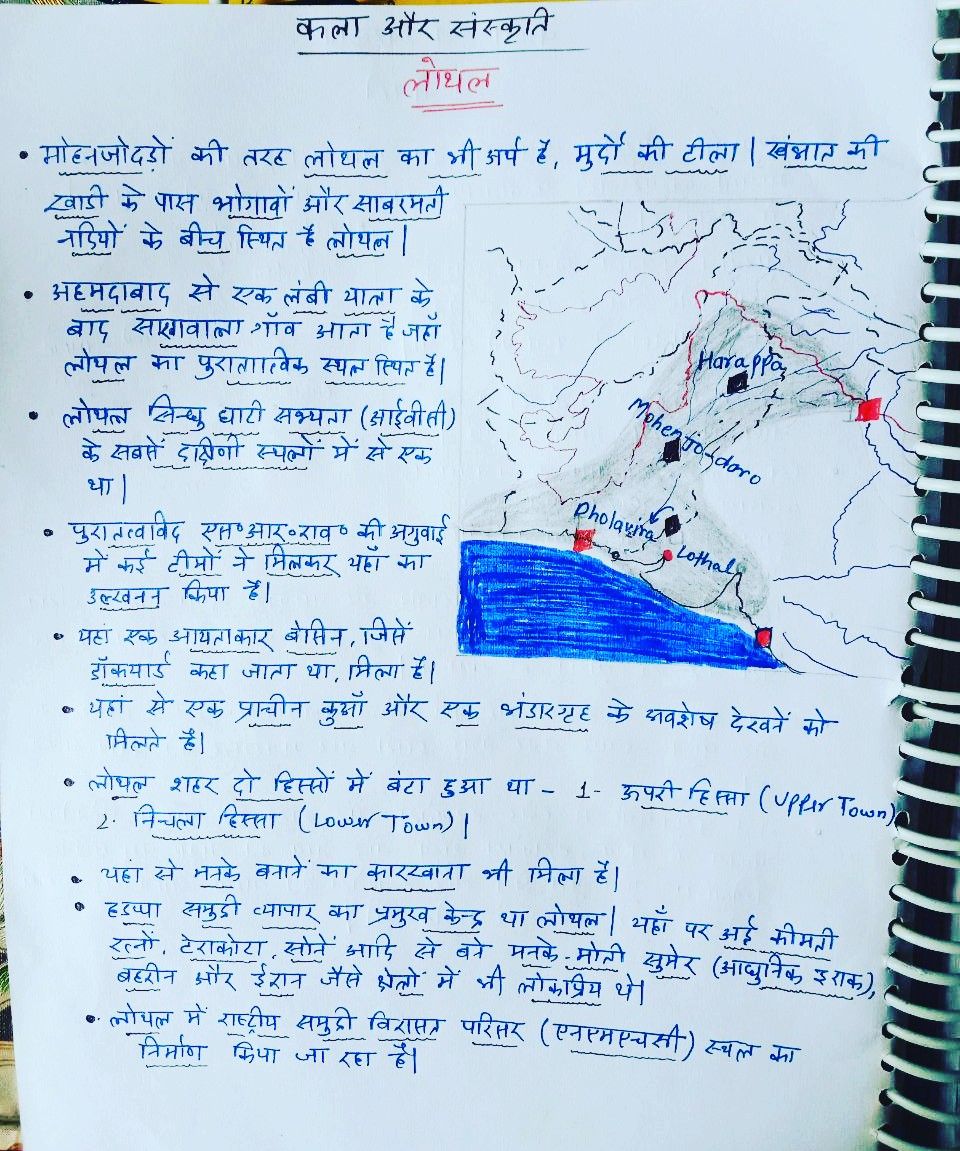 कला और संस्कृति
लोथल
• मोहनजोदड़ों की तरह लोथल का भी अर्थ है, मुर्दों की टीला | खंभात की
खाडी के पास भोगावों और साबरमती
नदियों के बीच स्थित है लोथल |
• अहमदाबाद से एक लंबी यात्रा के
बाद सारावाला गाँव आता है जहाँ
लोथल का पुरातात्विक स्थल स्थित है|
• लोथल सिन्धु घाटी सभ्यता (आईवीसी)
के सबसें दक्षिणी स्थलों में से एक
था |
• पुरातत्वविद एस॰आर॰राव॰ की अगुवाई
में कई टीमों ने मिलकर यहाँ का
उत्खनन किया है|
• यहां एक आयताकार बेसिन, जिसें
डॉकयार्ड कहा जाता था, मिला है|
• यहां से एक प्राचीन कुआँ और एक भंडारगृह के अवशेष देखनें को
मिलते है|
• लोथल शहर दो हिस्सों में बंटा हुआ था - 1- ऊपरी हिस्सा (Upper Town)
2- निचला हिस्सा (Lower Town) |
• यहां से मनके बनानें का कारखाना भी मिला है|
• हडप्पा समुद्री व्यापार का प्रमुख केन्द्र था लोथल | यहाँ पर अर्द्ध कीमती
रत्नों, टेराकोटा, सोनें आदि से बने मनके-मोती सुमेर (आधुनिक इराक),
बहरीन और ईरान जैसे क्षेत्रों में भी लोकप्रिय थे|
• लोथल में राष्ट्रीय समुद्री विरासत परिसर (एनएमएचसी) स्थल का
निर्माण किया जा रहा है|
Harappa
Mohenjo-daro
Dholavira
Lothal